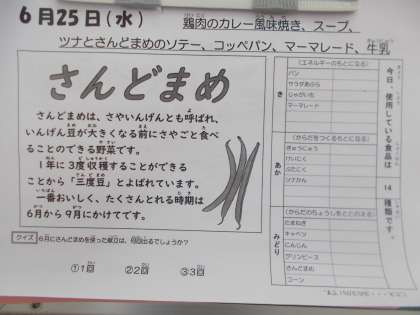 6月25日(水) 鶏肉のカレー風味焼き、スープ、
ツナとさんどまめのソテー、コッペパン、マーマレード、牛乳
さんどまめ
さんどまめは、さやいんげんとも呼ばれ、
いんげん豆が大きくなる前にさやごと食べ
ることのできる野菜です。
1年に3度収穫することができる
ことから「三度豆」とよばれています。
一番おいしく、たくさんとれる時期は
6月から9月にかけてです。
クイズ 6月にさんどまめを使った献立は、何回出るでしょうか?
①1回 ②2回 ③3回
今日、使用している食品は 14 種類です。
き
(エネルギーのもとになる)
パン
サラダあぶら
じゃがいも
マーマレード
あか
(からだをつくるもとになる)
ぎゅうにゅう
けいにく
ぶたにく
ツナかん
みどり
(からだのちょうしをととのえる)
たまねぎ
キャベツ
にんじん
グリンピース
さんどまめ
コーン